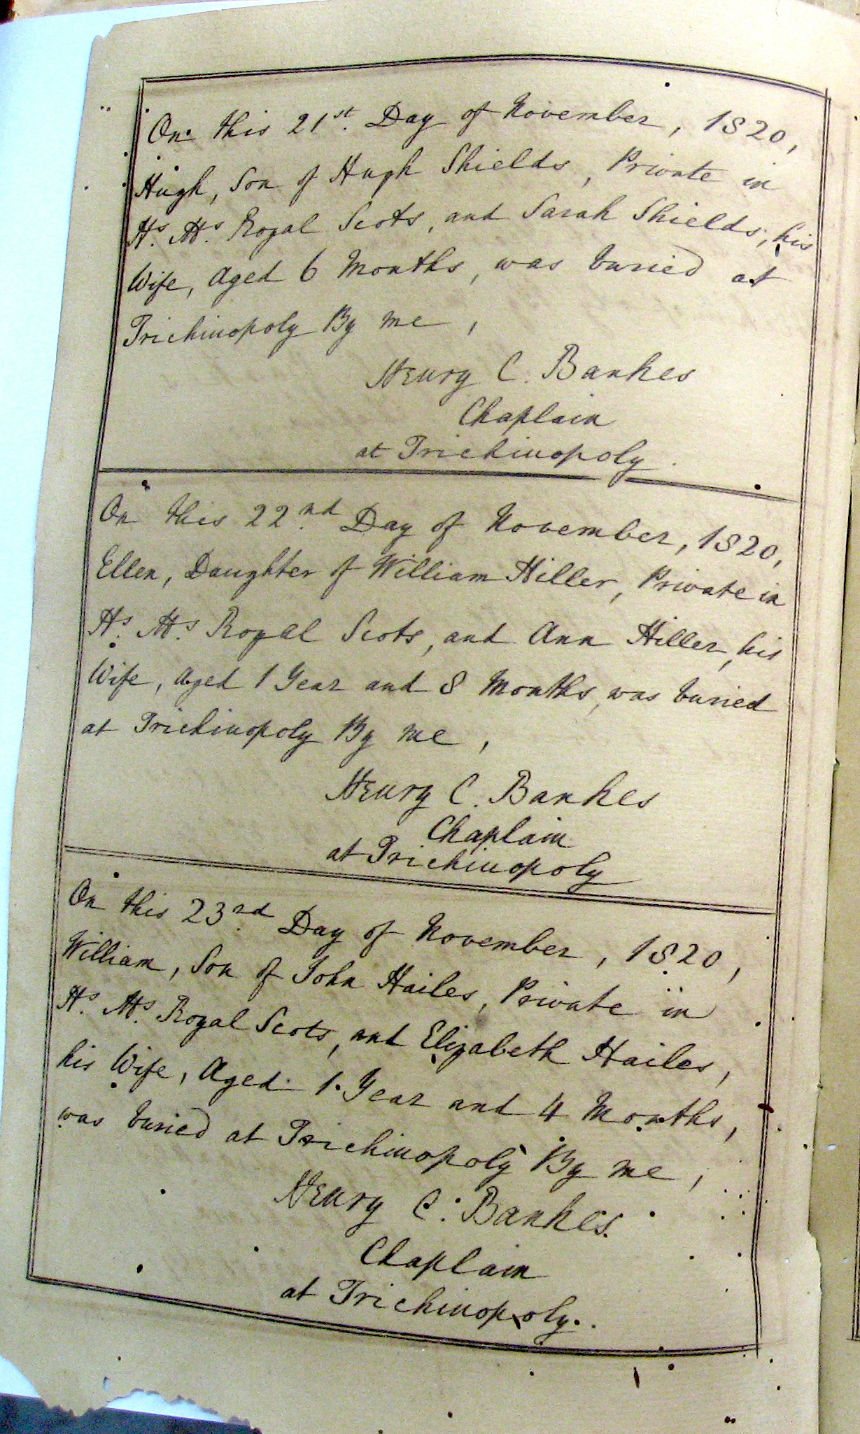 On this 21st Day of November, 1820,
Hugh, Son of Hugh Shields, Private in
Hs. Ms. Royal Scots, and Sarah Shields, his
Wife, Aged 6 Months, was buried at
Trichinopoly By me,
Henry C. Bankes
Chaplain
at Trichinopoly.
On this 22nd Day of November, 1820,
Ellen, Daughter of William Hiller, Private in
Hs. Ms. Royal Scots, and Ann Hiller, his
Wife, Aged 1 Year and 8 Months, was buried
at Trichinopoly By me,
Henry C. Bankes
Chaplain
at Trichinopoly
On this 23rd Day of November, 1820,
William, Son of John Hailes, Private in
Hs. Ms. Royal Scots, and Elizabeth Hailes,
his Wife, Aged 1 Year and 4 Months,
was buried at Trichinopoly By me,
Henry C. Bankes.
Chaplain
at Trichinopoly.